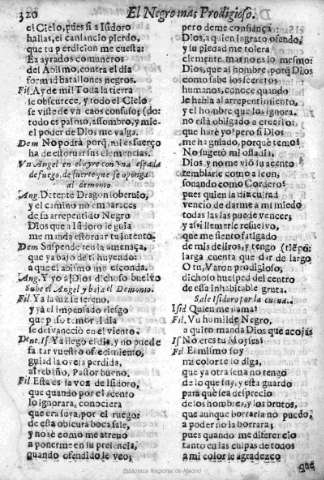 320
El Negro mas Prodigioso.
el Cielo, pues si a Isidoro
hallas, el cansancio pierdo,
que tu perdicion me cuesta:
Ea ayrados comuneros
del Abismo, contra el dia
formad batallones negros.
Fil. Ay de mi! Toda la tierra
se obscurece, y todo el Cielo
se viste de confusos:
todo es palmo, assombro, y
el poder de Dios me valga.
Dem No podrà porq̃ mi esfuerço
ha de estorvar sus clemencias.
Và Angel en elevacion con espada
de fuego, de suerte que se oponga
al demonio.
Ang. Detente Dragon soberbio,
y el camino no embaraces
de esse arrepentido Negro
Dios que a Isidoro le guia
me manda estorvar tu intento.
Dem Suspende essa amenaça,
que ya baxo de ti huyendo
a que el abismo me esconda.
Ang. Y yo a Sion dichoso buelvo
Sube el Angel y baja el Demonio.
Fil. Ya la luz se sereno,
y ya el impensado riesgo
que puso temor al dia
se desvaneciò en el viento.
Dent. Is. Ya llego el dia, y no puede
faltar vuestro ofrecimiento,
guiad la oveja perdida,
al rebaño, Pastor bueno.
Fil Esta es la voz de Isidoro,
que quando por el acento
lo ignorara, conociera
que era suya, por el ruego:
de esta obscura boca sale,
y no sè como me atrevo
a ponerme en su presencia,
quando ofendido le veo;
pero deme confiança:
Dios, a quien ingrato ofendo,
y su piedad me tolera
clemente mas no es lo mesmo:
Dios, que al hombre, porq̃ Dios
como sabe los secretos
humanos, conoce quando
le habla al arrepentimiento,
y el hombre que los ignora,
no està obligado a creerlos:
que harè yo? pero si Dios
me ha guiado, porquè temo?
No sugetò mi ossadia,
Dios, y no me viò su acento
temblarle como a leon,
sonando como Cordero?
pues quien la dicha
vencio de darme a mi miedo
todas las puede vencer;
y assi llamarle resuelvo,
que me siento fatigado
de mis delitos, y tengo (tiẽpo:
larga cuenta que dar de largo
O tu, Varon prodigioso,
dichoso huesped del centro
de essa inhabitable gruta.
Sale Isidoro por la cueva.
Isid Quien me llama?
Fil. Vn humilde Negro,
a quien manda Dios que acojas
Is No eres tu Moyses?
Fil El mismo soy
mi color te lo diga,
que ya otra seña no tengo
de lo que fuy, y esta guardo
para que sea desprecio
de los nombres, y los brutos,
que aunque borrarla no puedo,
a poder no la borrara;
pues quando me diferencio
tanto en las culpas de todos
a mi color le agradezco
que
Biblioteca Regional de Madrid